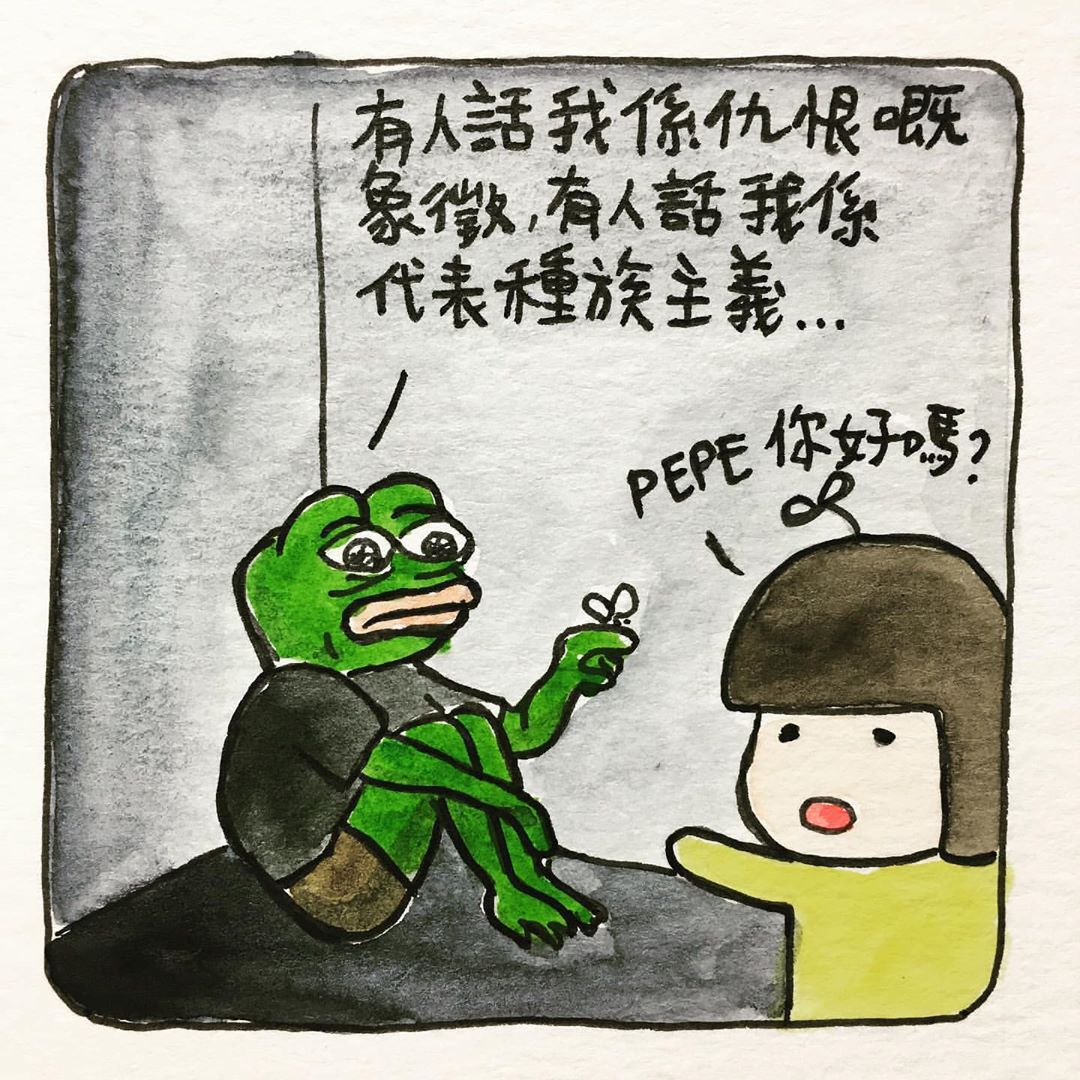 有人話我係仇恨嘅
象徵,有人話我係
代表種族主義...
PEPE 你好嗎?